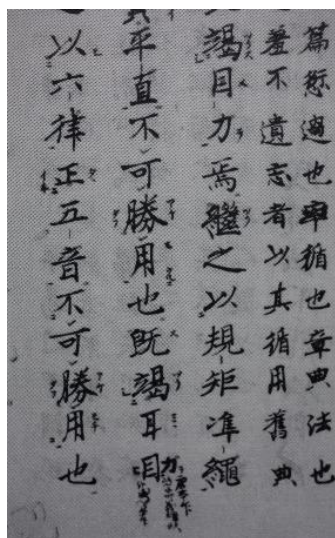 篇愆過也率循也章典法也
差不遺志者以其循用舊典
竭目力焉繼之以規矩准繩
平直不可勝用也既竭耳目
以六律正五音不可勝用也